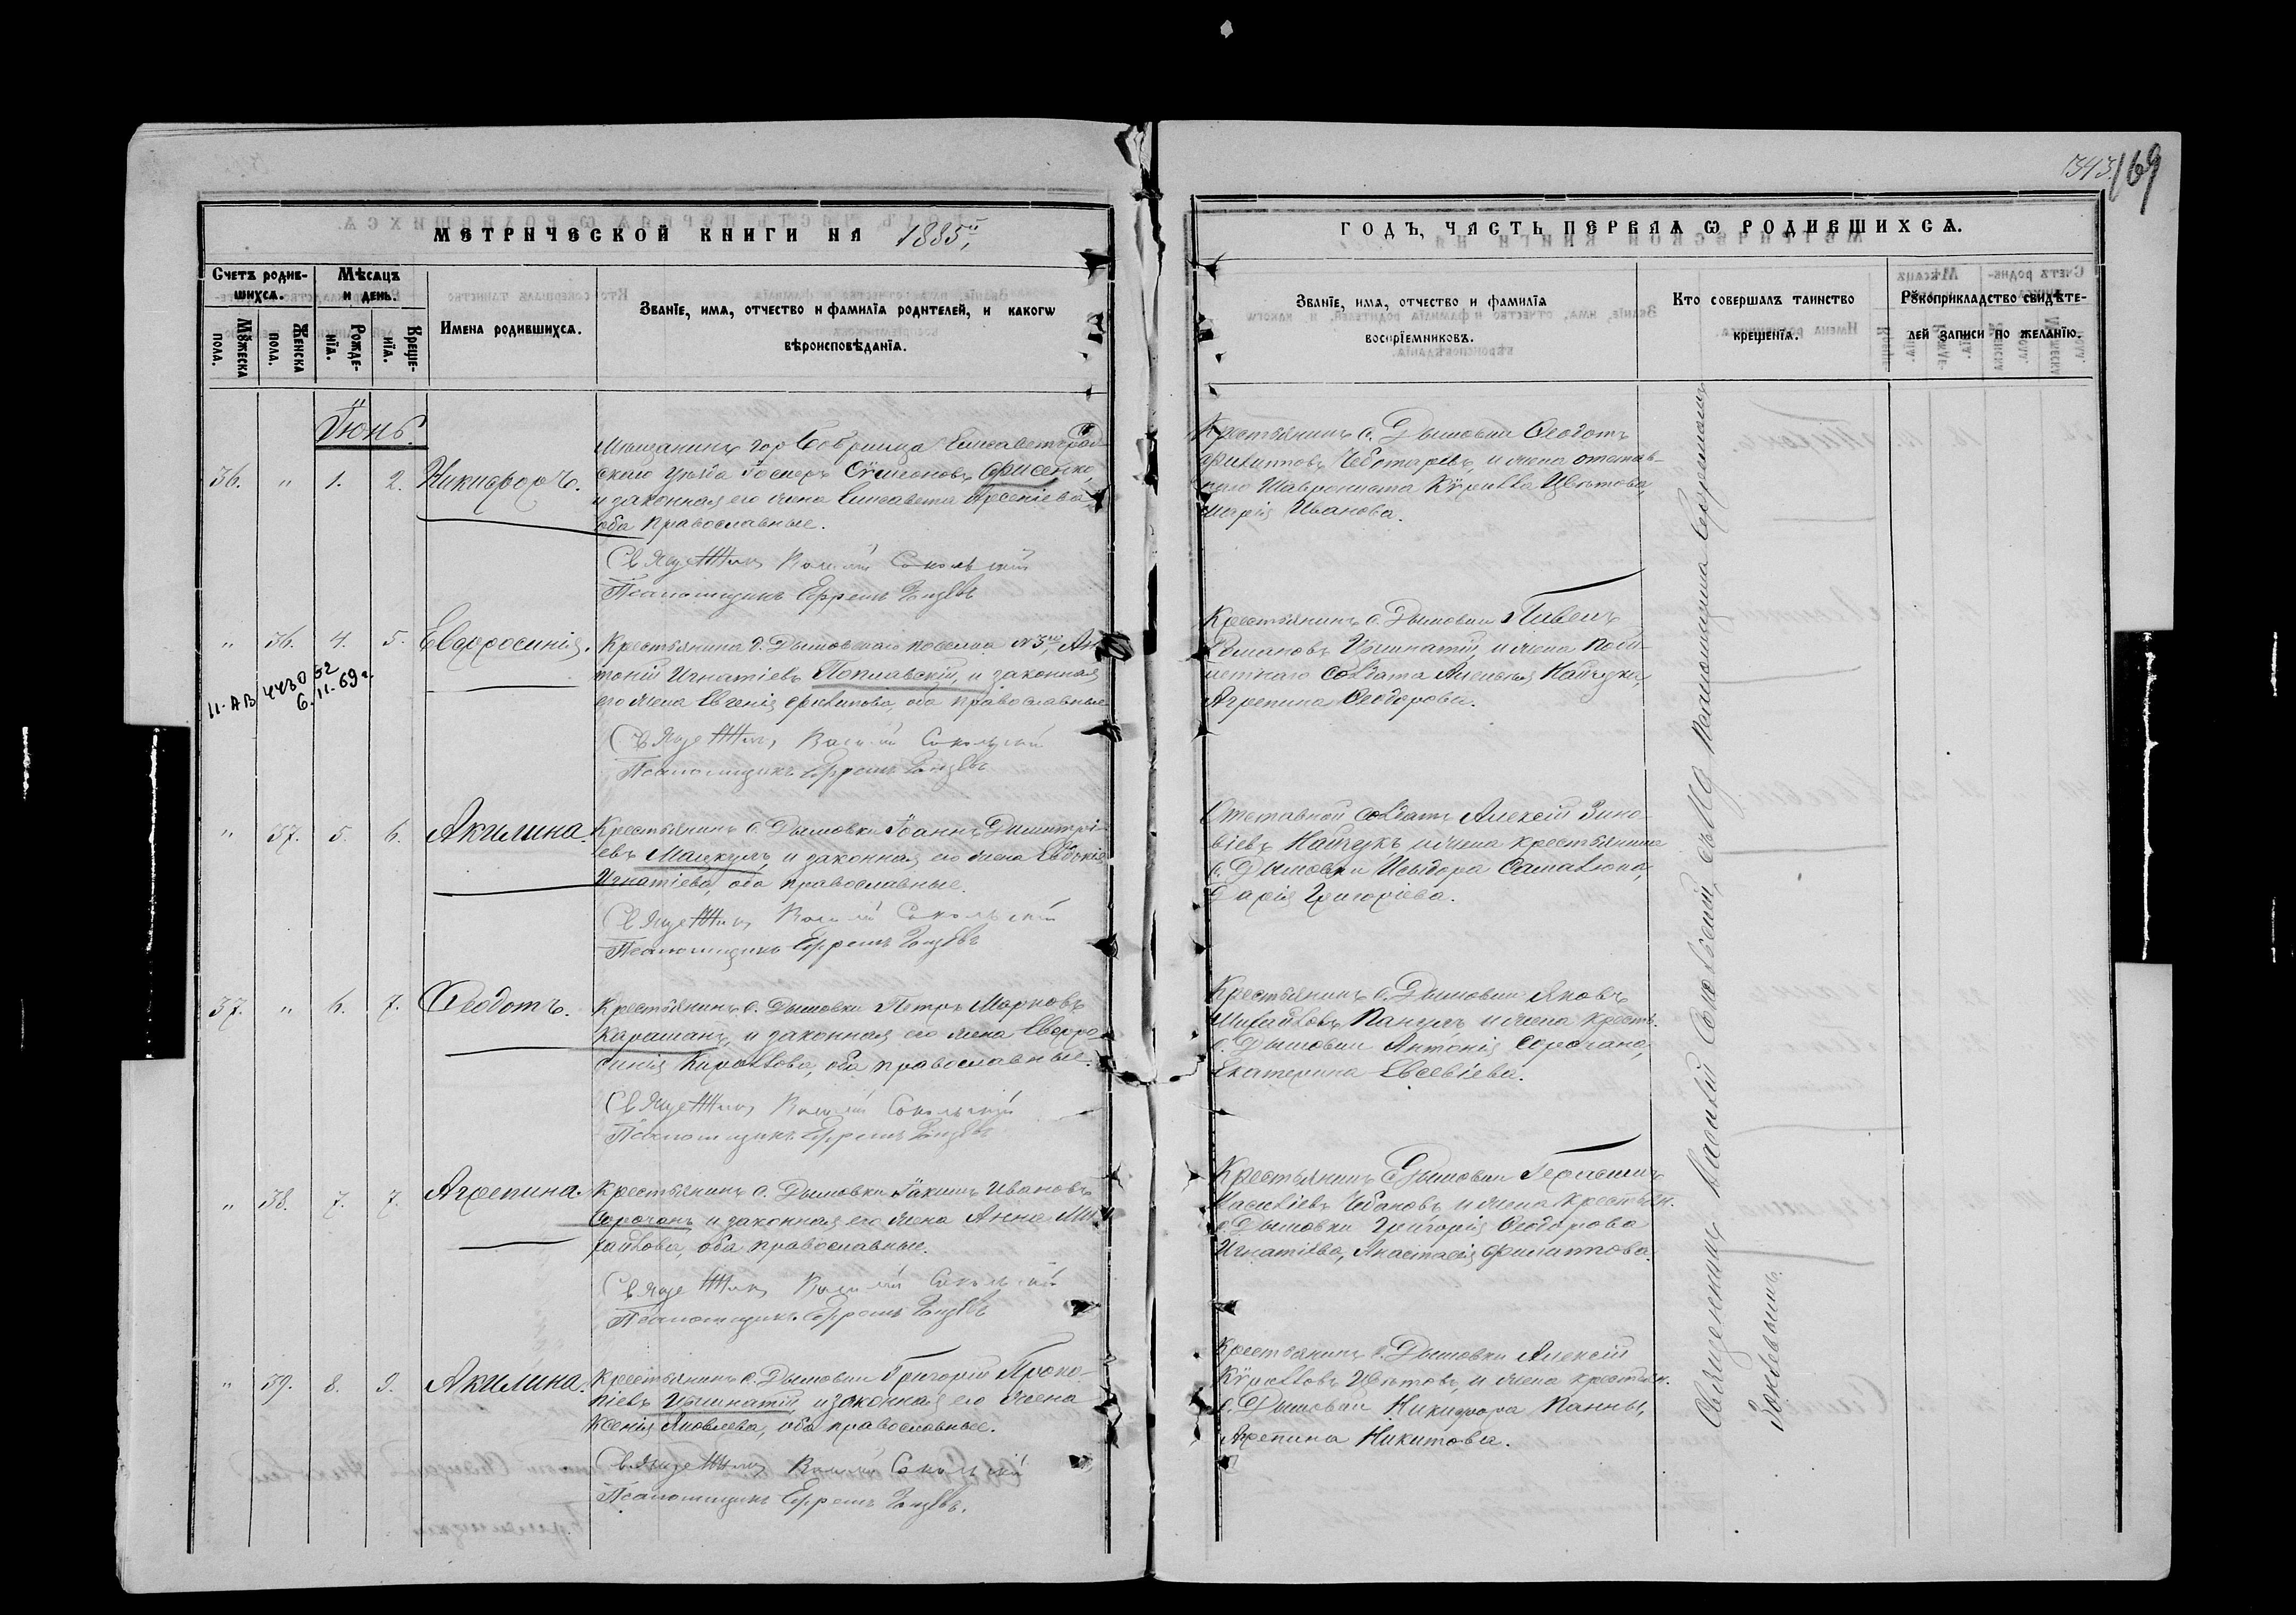 343. 169
МЕТРИЧЕСКОЙ КНИГИ НА 1885й,
Счетъ родив-
шихсѧ.
Мѣсѧцъ
и день.
Мꙋжеска
пола.
Женска
пола.
Рожде-
нїѧ.
Креще-
нїѧ.
Имена родившихсѧ.
Званїе, имѧ, отчество и фамилїѧ родителей, и какогѡ
вѣроисповѣданїѧ.
Іюнь.
36. " 1. 2. Никифоръ.
Мѣщанинъ гор Бобринца Елисаветград-
скаго уѣзда Іосифъ Сѷмеоновъ Фисенко,
и законная его жена Елисавета Арсеніева
оба православные.
Священникъ Василій Сокольскій
Псаломщикъ Ефремъ
" 36. 4. 5. Евфросинія.
Крестьянинъ с. Дымовскаго поселка № 3го, Ан-
тоній Игнатіевъ Поплавскій, и законная
его жена Евгенія Филипова, оба православные
Священникъ Василій Сокольскій
Псаломщикъ Ефремъ
II-АВ 443052
6.II-69г
" 37. 5. 6. Акилина.
Крестьянинъ с. Дымовки Іоаннъ Димитрі-
евъ Мацкулъ, и законная его жена Евдокія
Игнатіева, оба православные.
Священникъ Василій Сокольскій
Псаломщикъ Ефремъ
37. " 6. 7. Ѳеодотъ.
Крестьянинъ с. Дымовки Петръ Марковъ
Караманъ, и законная его жена Евфро-
синія Кириллова, оба православные.
Священникъ Василій Сокольскій
Псаломщикъ Ефремъ
" 38. 7. 7. Агрепина.
Крестьянинъ с. Дымовки Іакимъ Ивановъ
Сорочанъ и законная его жена Анна Ми-
хайлова, оба православные.
Священникъ Василій Сокольскій
Псаломщикъ Ефремъ
" 39. 8. 9. Акилина.
Крестьянинъ с. Дымовки Григорій Проко-
піевъ и законная его жена
Ксенія Яковлева, оба православные.
Священникъ Василій Сокольскій
Псаломщикъ Ефремъ
ГОДЪ, ЧАСТЬ ПЕРВАѦ Ѡ РОДИВШИХСѦ.
Званїе, имѧ, отчество и фамилїѧ
воспрїемниковъ.
Кто совершалъ таинство
крещенїѧ.
Рꙋкоприкладство свидѣте-
лей записи по желанїю.
Крестьянинъ с. Дымовки Ѳеодотъ
Филипповъ Чеботаревъ, и жена отстав-
наго Кѷрилла Цвѣтова,
Марія Иванова.
Крестьянинъ с. Дымовки Павелъ
Романовъ и жена
солдата Алексѣя Найчука,
Агрепина Ѳеодорова.
Отставной солдатъ Алексій Зино-
віевъ Найчукъ и жена крестьянина
с. Дымовки Исидора Самалюка,
Дарія Григоріева.
Крестьянинъ с. Дымовки Яковъ
Михайловъ и жена крест.
с. Дымовки Антонія Сорочана,
Екатерина Евсевіева.
Крестьянинъ с. Дымовки Герасимъ
Василіевъ Чебановъ и жена крестьян.
с. Дымовки Григорія Ѳеодорова
Игнатіева, Анастасія Филиппова.
Крестьянинъ с. Дымовки Алексій
Кѷрилловъ Цвѣтовъ, и жена крестьян.
с. Дымовки Никифора Панны,
Агрепина Никитова.
Священникъ Василій Сокольскій, съ псаломщикомъ Ефремомъ